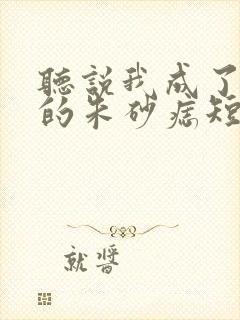 聽説我成了
的朱砂痣短
就醬